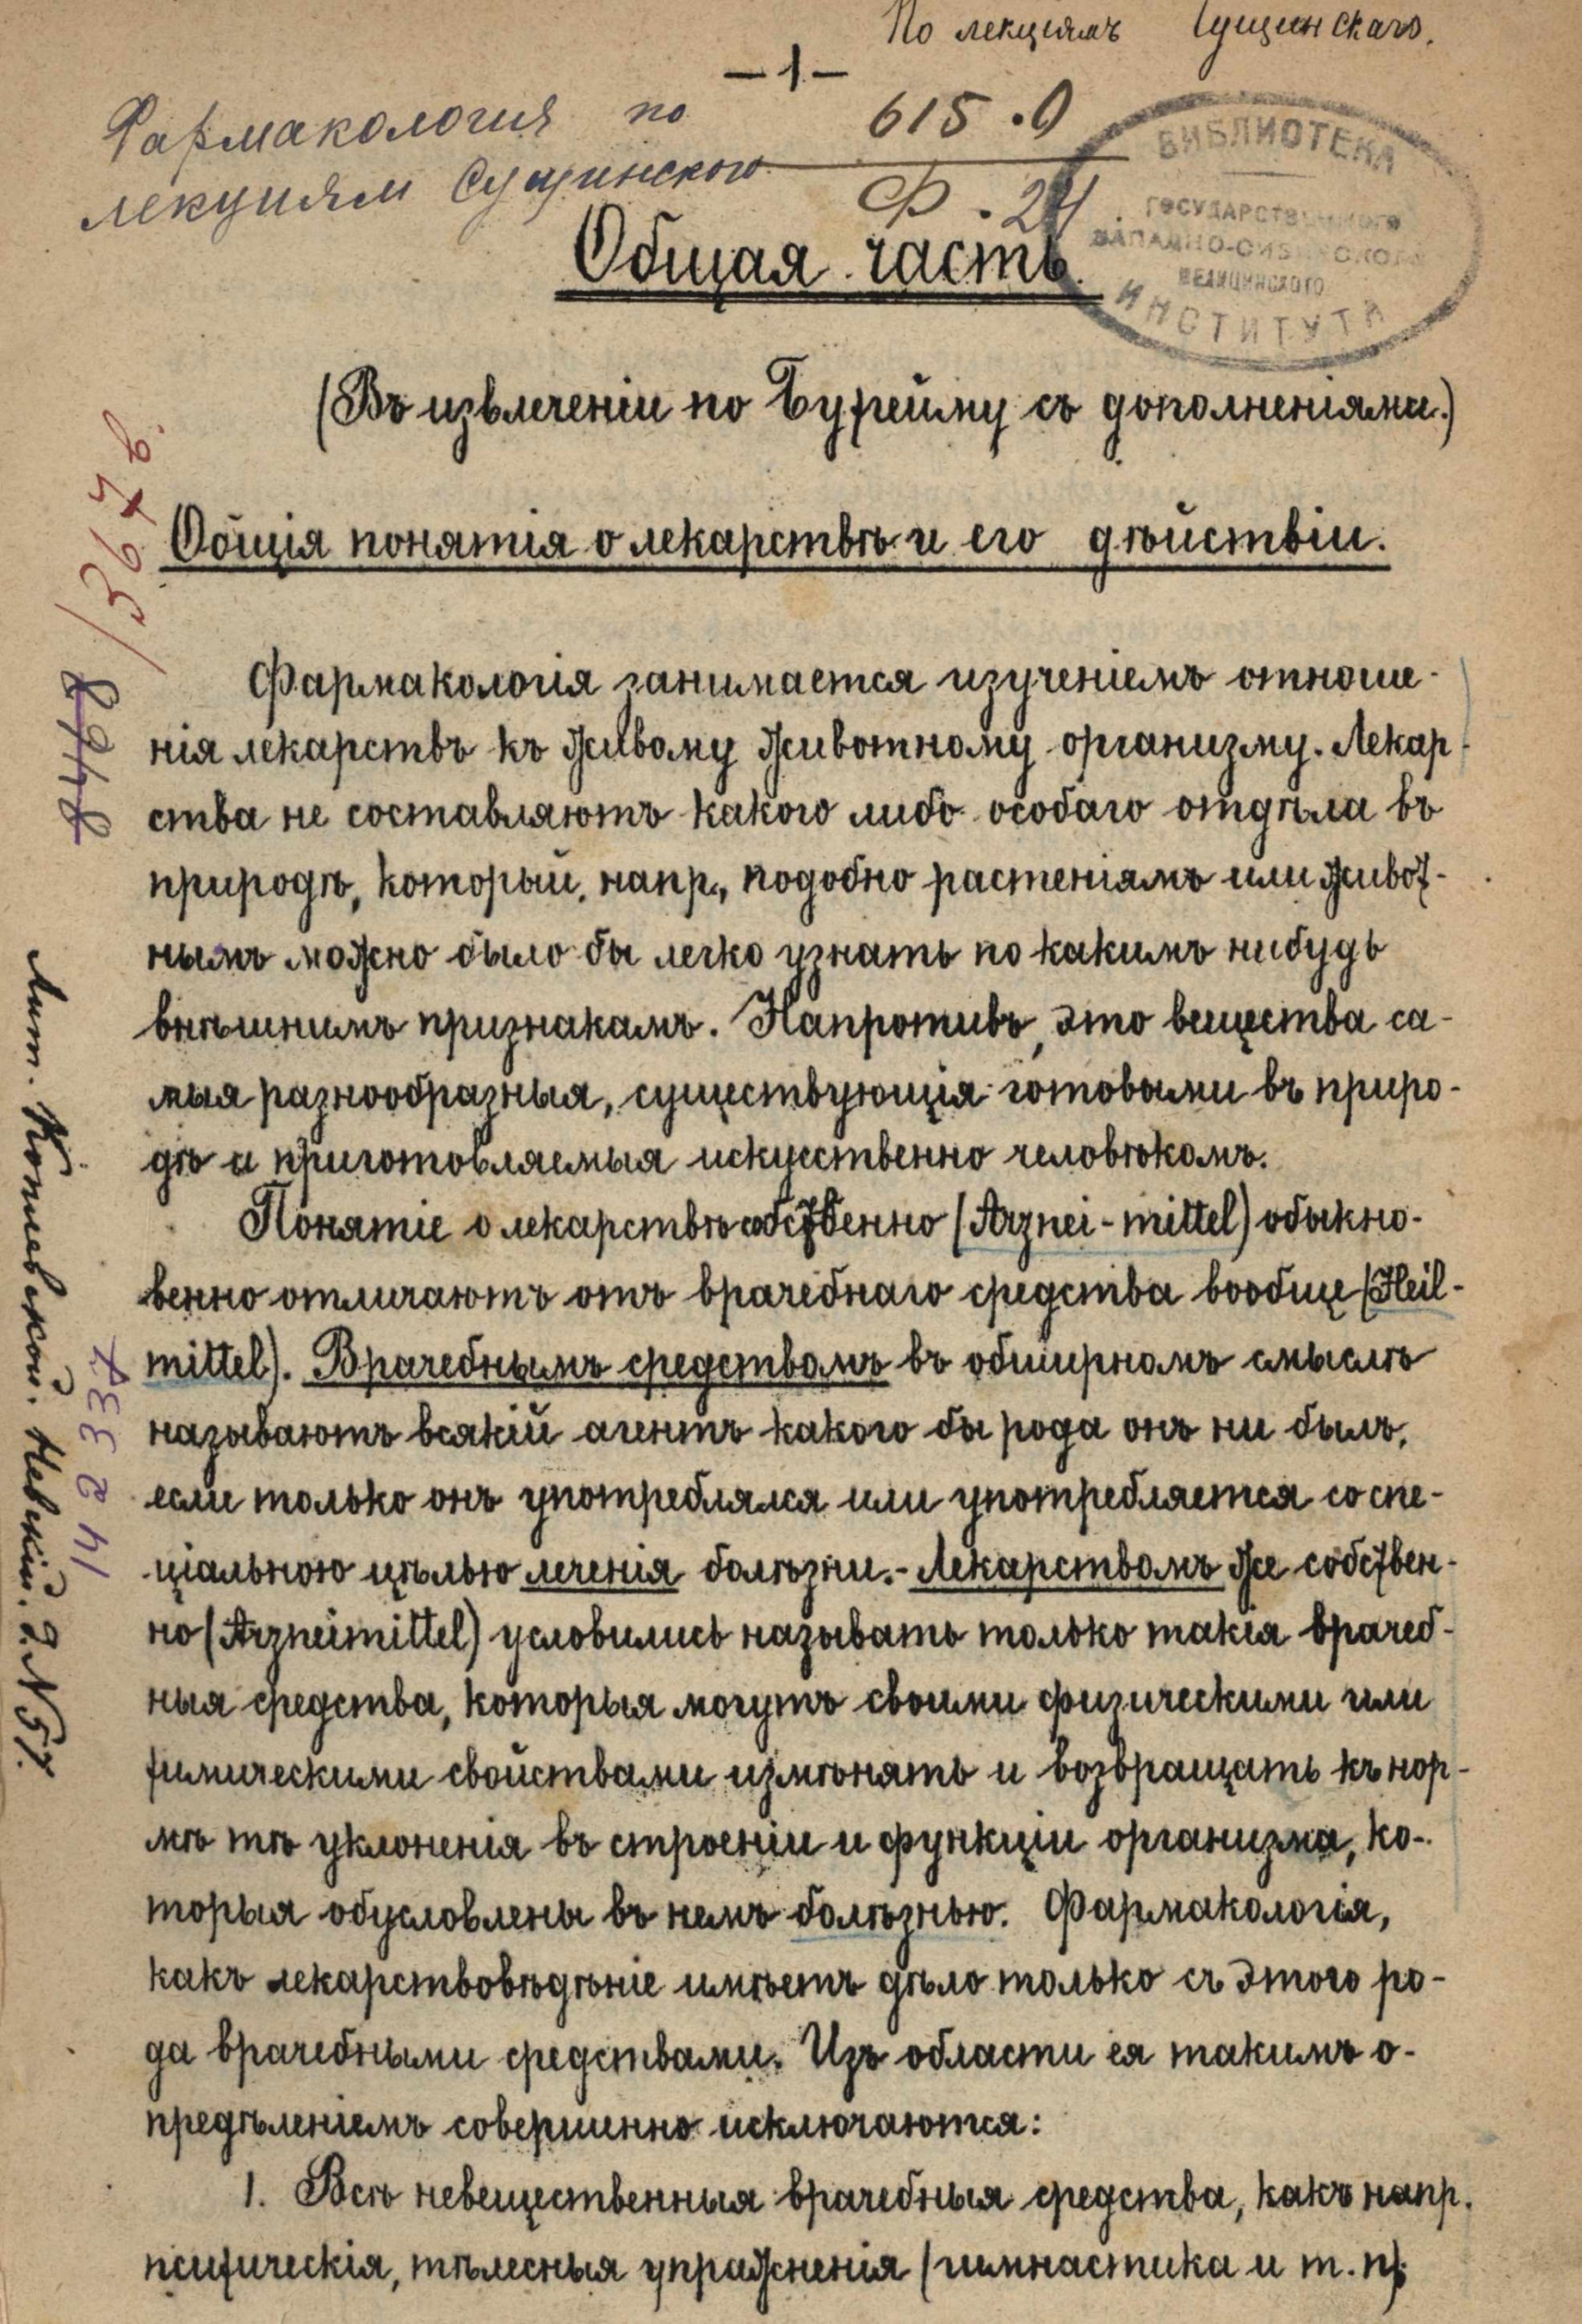 По лекціямъ Сущинскаго.
— 1 —
Фармакология по
лекциям Сущинского
615.0
Ф. 24
БИБЛИОТЕКА
ГОСУДАРСТВЕННОГО
ЗАПАДНО-СИБИРСКОГО
МЕДИЦИНСКОГО
ИНСТИТУТА
Общая часть.
(Въ извлеченіи по Бухгейму съ дополненіями.)
Общія понятія о лекарствѣ и его дѣйствіи.
Фармакологія занимается изученіемъ отноше-
нія лекарствъ къ живому животному организму. Лекар-
ства не составляютъ какого либо особаго отдѣла въ
природѣ, который, напр., подобно растеніямъ или живот-
нымъ можно было бы легко узнать по какимъ нибудь
внѣшнимъ признакамъ. Напротивъ, это вещества са-
мыя разнообразныя, существующія готовыми въ приро-
дѣ и приготовляемыя искусственно человѣкомъ.
Понятіе о лекарствѣ собственно (Arznei-mittel) обыкно-
венно отличаютъ отъ врачебнаго средства вообще (Heil-
mittel). Врачебнымъ средствомъ въ обширномъ смыслѣ
называютъ всякій агентъ какого бы рода онъ ни былъ,
если только онъ употреблялся или употребляется со спе-
ціальною цѣлью леченія болѣзни. - Лекарствомъ же собствен-
но (Arzneimittel) условились называть только такія врачеб-
ныя средства, которыя могутъ своими физическими или
химическими свойствами измѣнять и возвращать къ нор-
мѣ тѣ уклоненія въ строеніи и функціи организма, ко-
торыя обусловлены въ немъ болѣзнью. Фармакологія,
какъ лекарствовѣдѣніе имѣетъ дѣло только съ этого ро-
да врачебными средствами. Изъ области ея такимъ о-
предѣленіемъ совершенно исключаются:
1. Всѣ невещественныя врачебныя средства, какъ напр.
психическія, тѣлесныя упражненія (гимнастика и т. п.)
1367 в.
8468
14 2 337
Лит. Коплевской. Невскій. д. N 57.